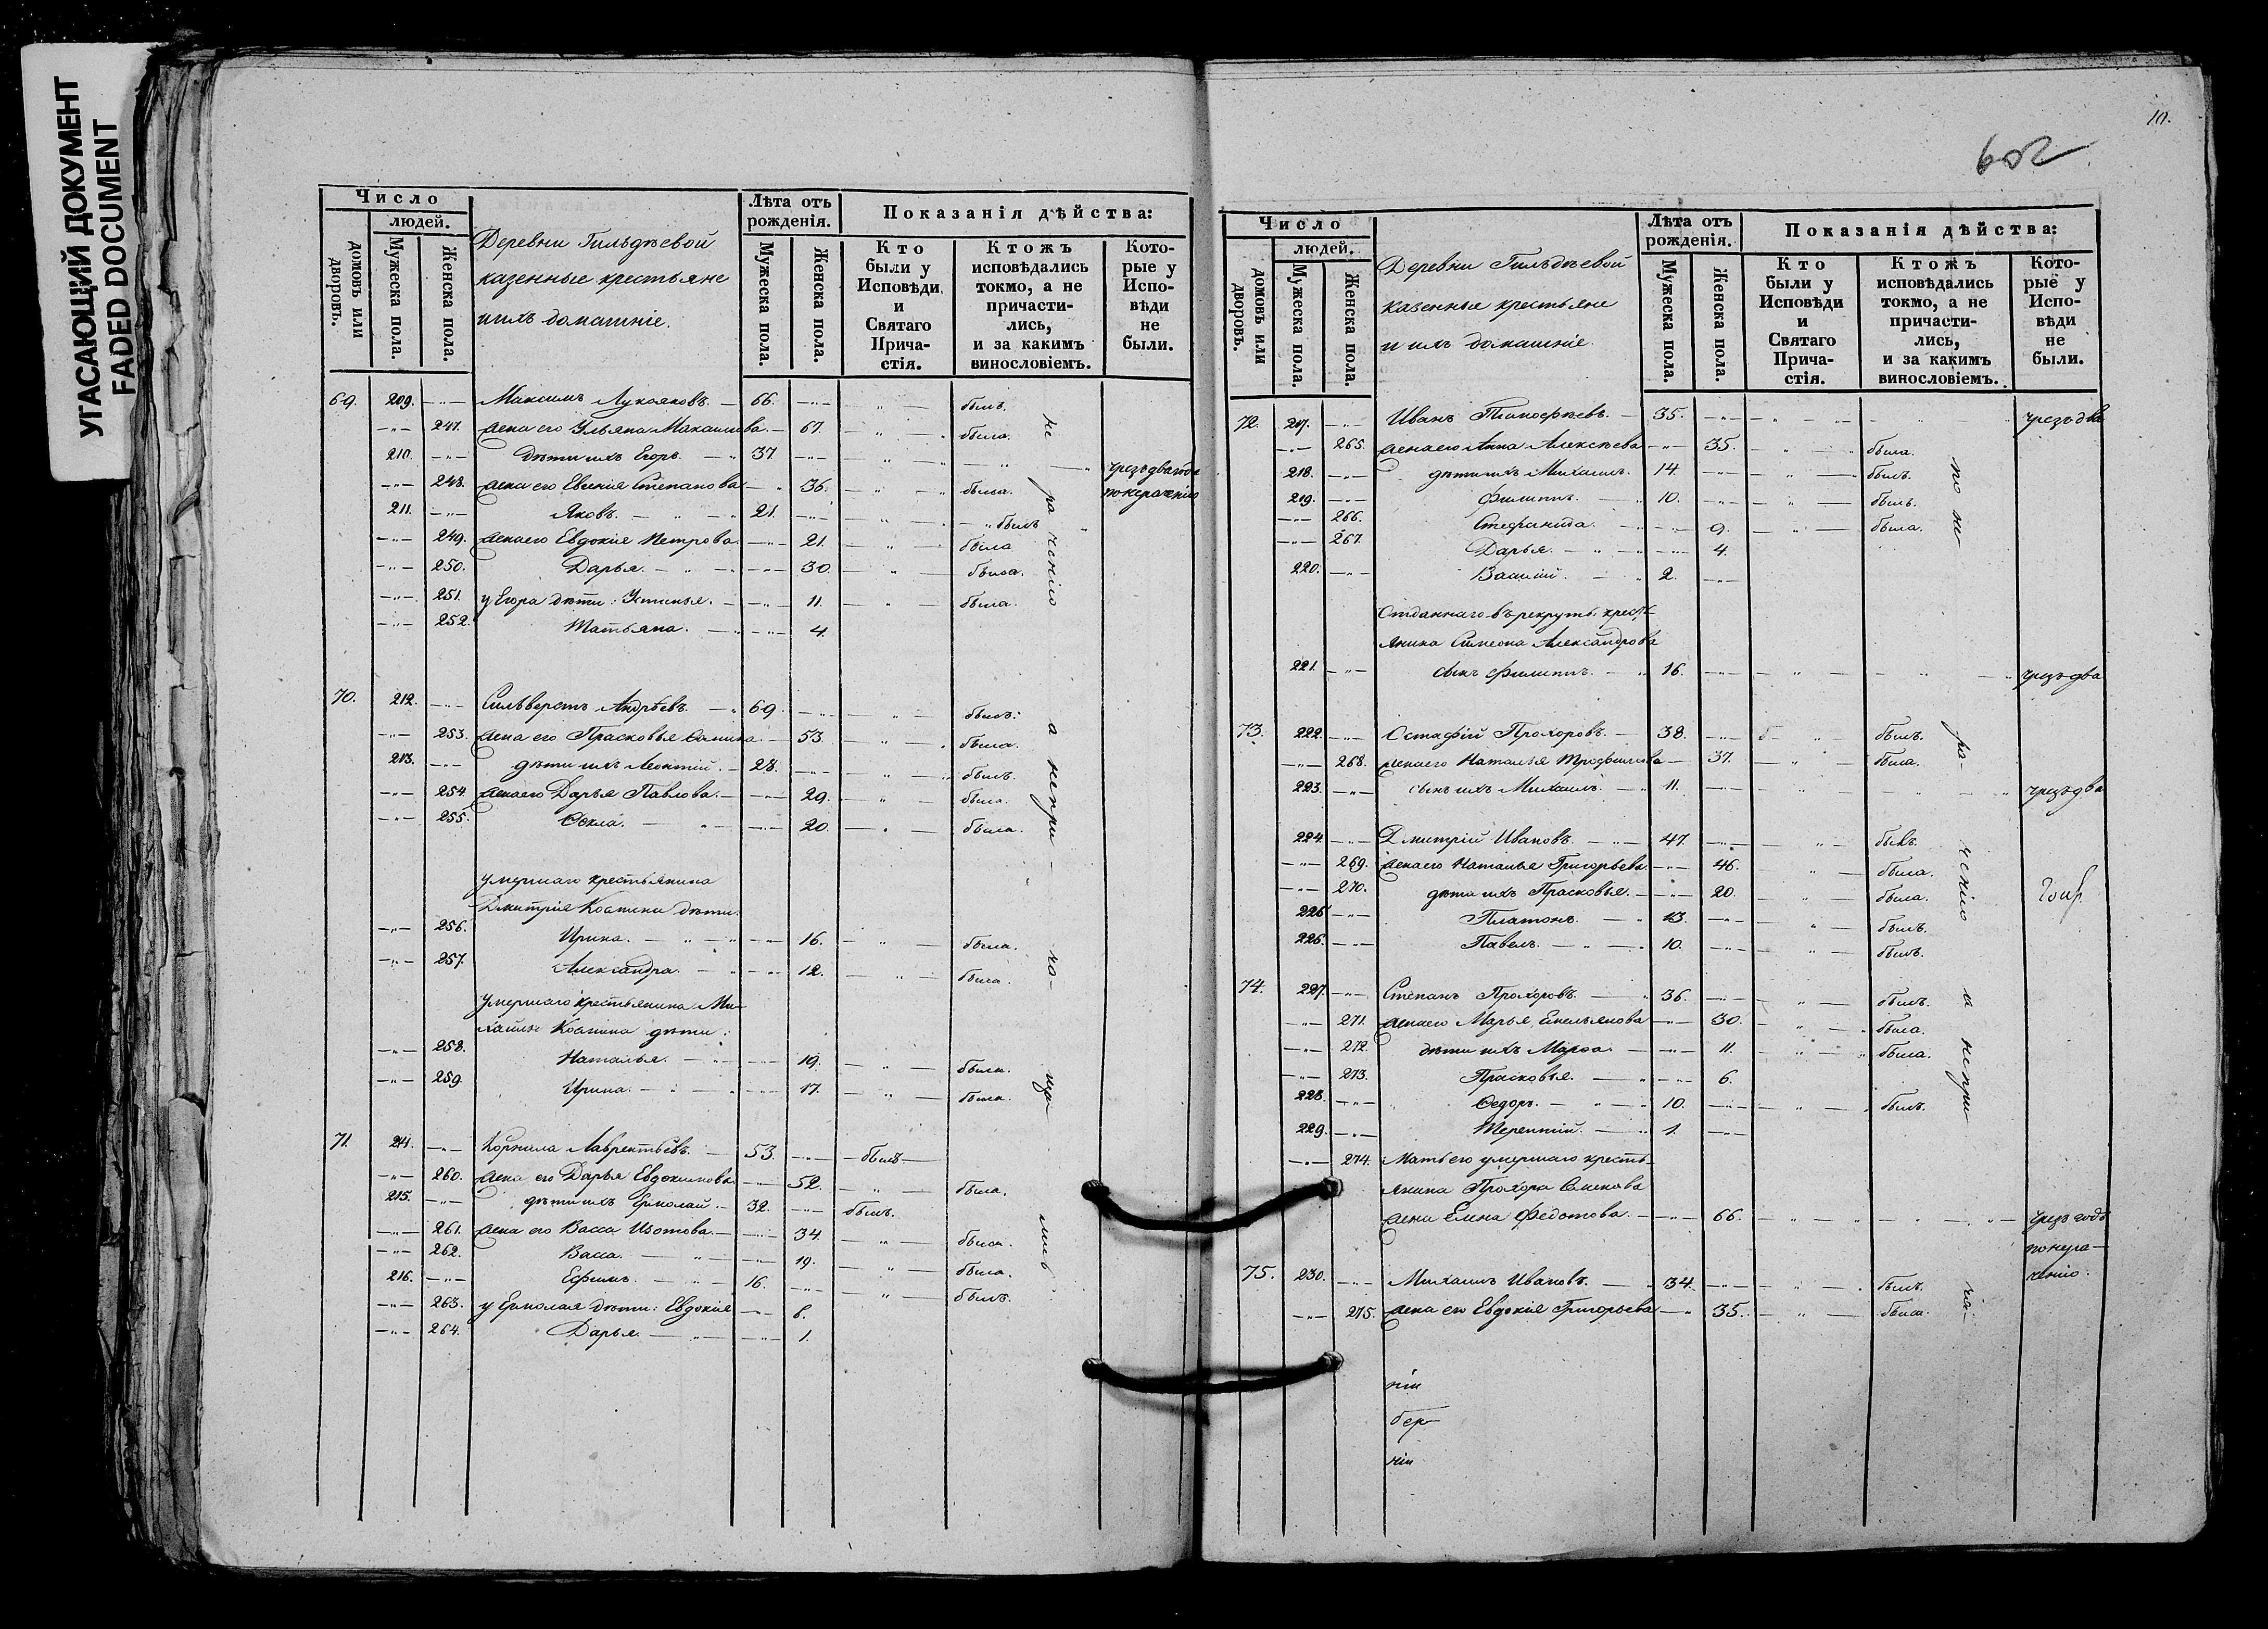 УГАСАЮЩИЙ ДОКУМЕНТ
FADED DOCUMENT
Число
людей.
домовъ или дворовъ.
Мужеска пола.
Женска пола.
Деревни Гильдѣевой
казенные крестьяне
и ихъ домашніе.
Лѣта отъ рожденія.
Мужеска пола.
Женска пола.
Показанія дѣйства:
Кто были у Исповѣди и Святаго Причастія.
Ктожъ исповѣдались токмо, а не причастились, и за какимъ винословіемъ.
Которые у Исповѣди не были.
69. 209. Максимъ 66. былъ.
247. жена его Ульяна 67. была.
210. дѣти ихъ Егоръ. 37. чрезъ два года
248. жена его Евгенія Степанова 36. была. по нераченію
211. Яковъ. 21. былъ
249. жена его Евдокія Петрова. 21. была
250. Дарья. 30. была.
251. у Егора дѣти: Устинья. 11. была.
252. Татьяна. 4.
70. 212. Сильверстъ Андрѣевъ. 69. былъ.
253. жена его Прасковья 53. была.
213. дѣти ихъ Леонтій. 28. былъ.
254. жена его Дарья Павлова. 29. была.
255. Ѳекла. 20. была.
умершаго крестьянина
Дмитрія дѣти.
256. Ирина. 16. была.
257. Александра. 12. была.
умершаго крестьянина Ми-
хайлы дѣти:
258. Наталья. 19. была.
259. Ирина. 17. была.
71. 214. Корнила Лаврентьевъ. 53. былъ
260. жена его Дарья Евдокимова 52. была.
215. дѣти ихъ Ермолай. 32. былъ.
261. жена его Васса Изотова. 34. была.
262. Васса. 19. была.
216. Ефимъ. 16. былъ.
263. у Ермолая дѣти: Евдокія 6.
264. Дарья. 1.
не раченію а непри-ча-щались.
10.
602
Число
людей.
домовъ или дворовъ.
Мужеска пола.
Женска пола.
Деревни Гильдѣевой
казенные крестьяне
и ихъ домашніе.
Лѣта отъ рожденія.
Мужеска пола.
Женска пола.
Показанія дѣйства:
Кто были у Исповѣди и Святаго Причастія.
Ктожъ исповѣдались токмо, а не причастились, и за какимъ винословіемъ.
Которые у Исповѣди не были.
72. 217. Иванъ Тимофѣевъ. 35. чрезъ два
265. жена его Анна Алексѣева 35. была.
218. дѣти ихъ Михаилъ. 14. былъ.
219. Филиппъ. 10. былъ.
266. Стефанида. 9. была.
267. Дарья. 4.
220. Василій. 2.
Отданнаго въ рекруты крест-
янина Симеона Александрова
221. сынъ Филиппъ. 16. чрезъ два
73. 222. Остафій Прохоровъ. 38. былъ.
268. жена его Наталья Трофимова 37. была.
223. сынъ ихъ Михаилъ. 11. чрезъ два
224. Дмитрій Ивановъ. 47. былъ.
269. жена его Наталья Григорьева 46. была.
270. дѣти ихъ Прасковья. 20. была.
225 Платонъ. 13. былъ.
226. Павелъ. 10. былъ.
74. 227. Степанъ Прохоровъ. 36. былъ.
271. жена его Марья Емельянова 30. была.
272. дѣти ихъ Марѳа. 11. была.
273. Прасковья. 6.
228. Ѳедоръ. 10. былъ.
229. Терентій. 1.
274. Мать его умершаго кресть-
янина Прохора Симонова
жена Елена Федотова. 66. чрезъ годъ
по нера-
ченію.
75. 230. Михаилъ Ивановъ. 34. былъ.
275. жена его Евдокія Григорьева 35. была.
по не ра-ченію а непри ча-
ніи
бер
ніи